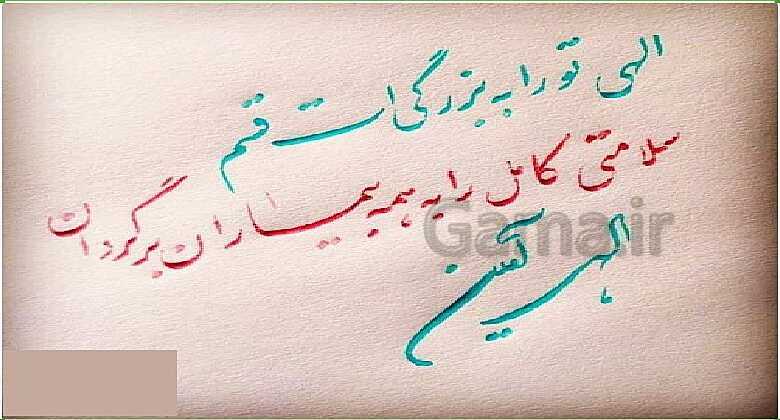 الهی تو را به بزرگی ات قسم
سلامتی کامل را به همه بیماران برگردان
الهی آمین
Gama.ir